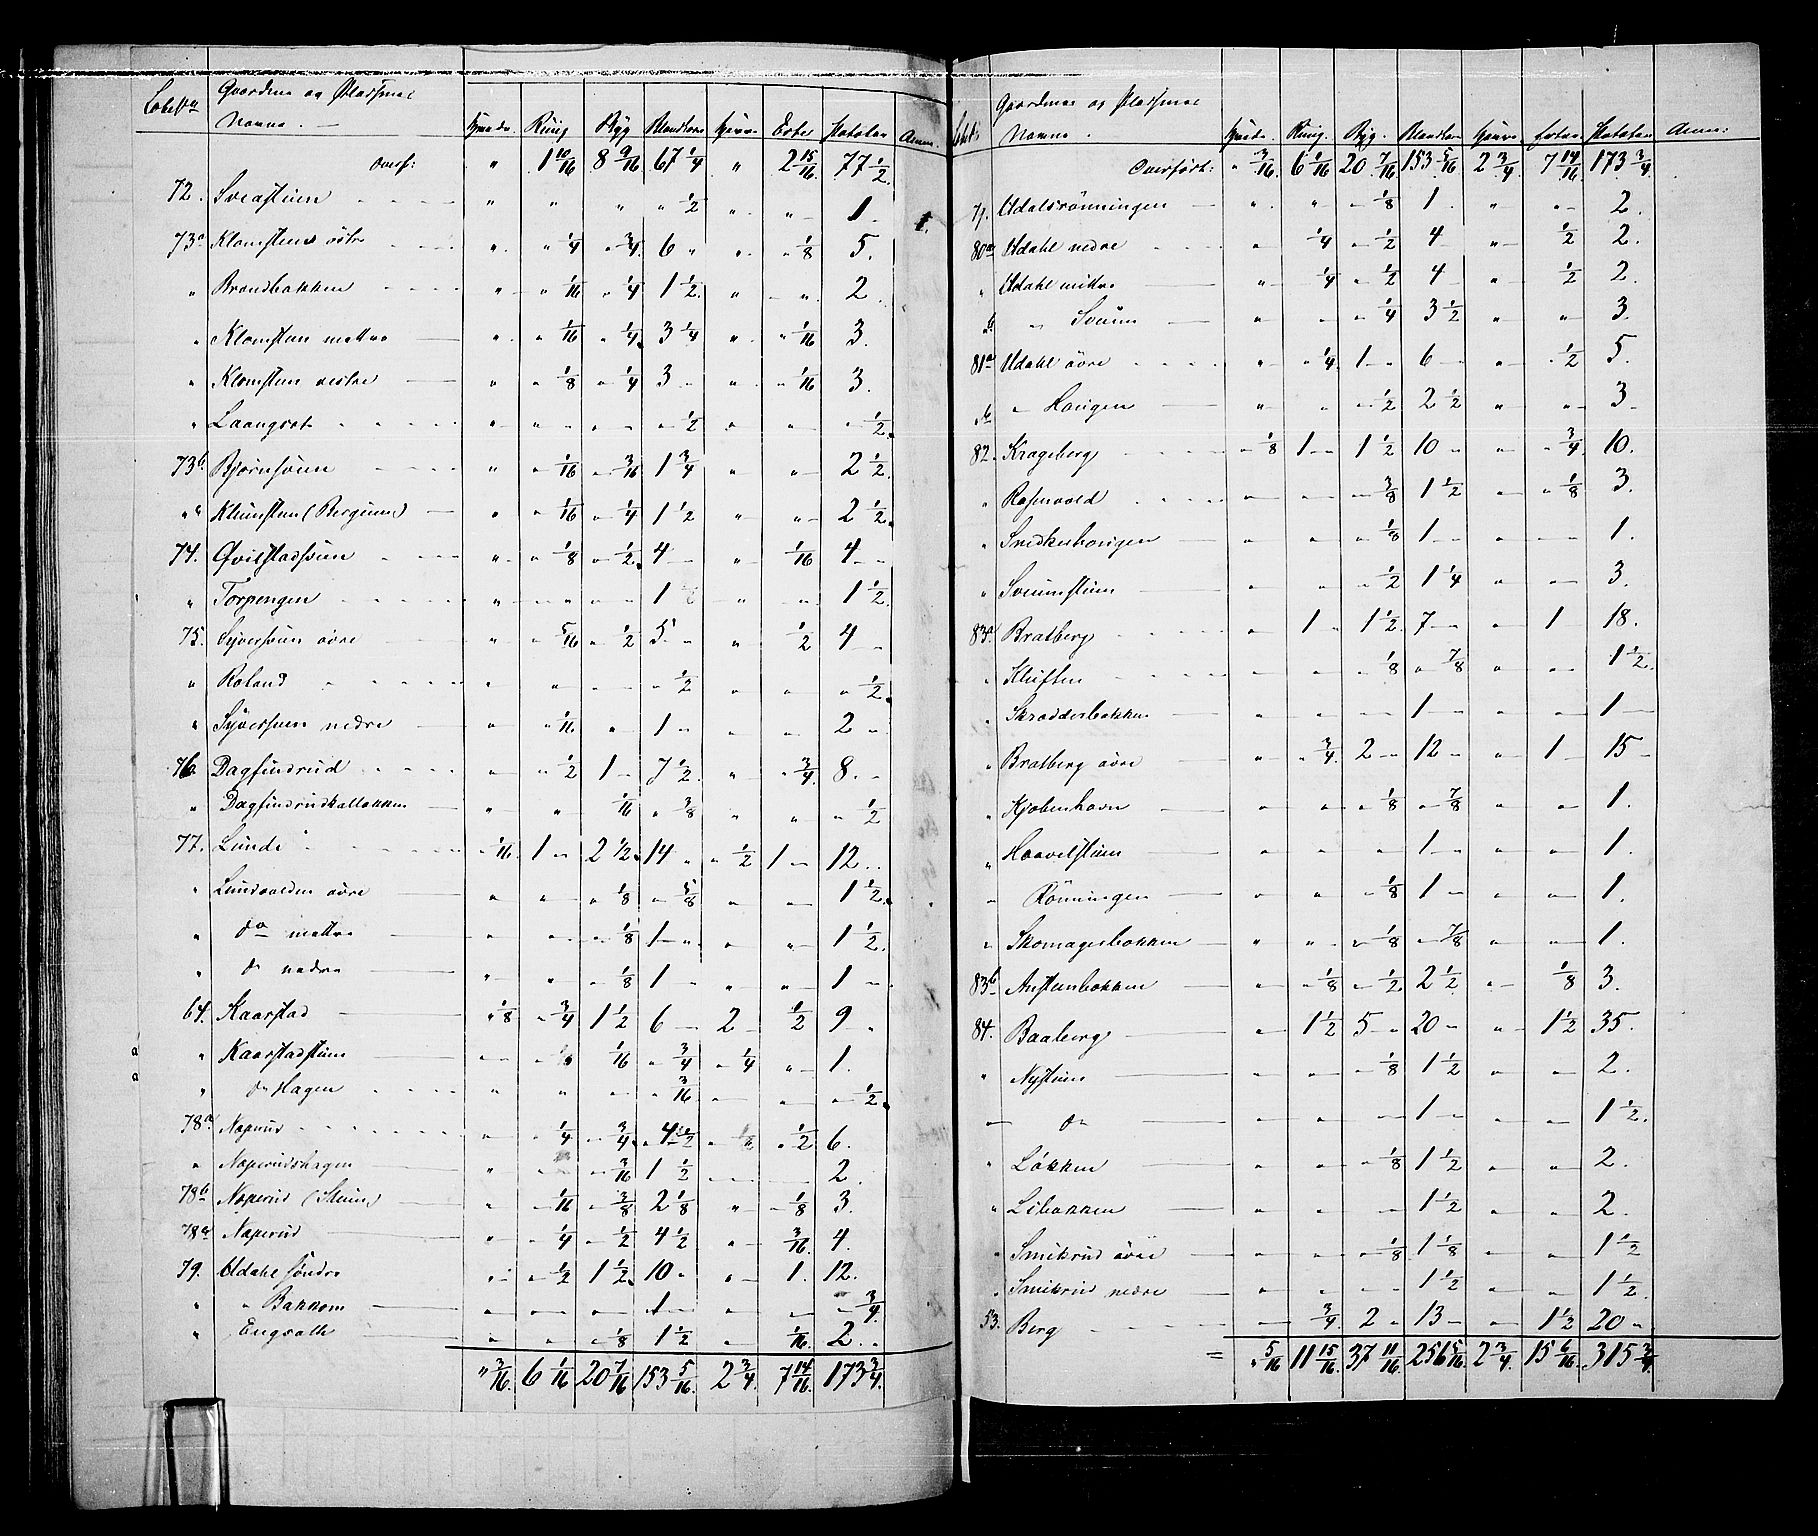 Gaardenes og Pladsenes
Navne.
Rug Byg Blandkorn Havre Erter Poteter Anm.
Overf: " 1 10/16 8 9/16 67 1/4 " 2 15/16 77 1/2
72. " " " " 1/2 " " 1
73a Klomstens östre " " 1/4 " 3/4 6 " " " 1/8 5.
" Brændbakken " " 1/16 " 1/4 1 1/2 " " 2
" Klomsten mellre " " 1/16 " 1/4 3 1/4 " " 1/16 3.
" Klomsten vestre " " 1/8 " 1/4 3 " " " 1/16 3.
" " " " " 1/2 " " " 1/2
73b Bjørnsveen " " 1/16 " 3/16 1 3/4 " " 2 1/2
" " Klumsten (Bergum) " " 1/16 " 1/4 1 1/2 " " 2 1/2
74. Qvilstadsveen " " 1/8 " 1/2 4 " " 1/16 4
" Torpengen " " " 1 " " 1 1/2
75. Syversveen øvre " " 5/16 " 1/2 5 " " 1/2 4
" Roland " " " " 1/2 " " " 1/2
" Syversveen nedre " " 1/16 " 1 " " " 2
76. Dagfindrud " " 1/2 1 7 1/2 " " 3/4 8
" Dagfindrudkalbakken " " 1/16 " 3/8 " " " 1/2
77. Lunde " 1/16 1 " 2 1/2 14 " " 1/2 1 12
" Lundvolden øvre " " " 1/8 " 5/8 " " 1 1/2
" do mellre " " " 1/8 1 " " " 1 1/2
" do nedre " " " 1/8 1 " " 1
64. Kaarstad " 1/8 " 3/4 1 1/2 6 2 1/2 9
" Kaarstadstuen " 1/16 " 3/4 " 1/4 " 1.
" do Hagen " " " 3/16 " " " 1/2
78a Noperud " " 1/4 " 3/4 4 1/2 " " 1/2 6.
" Noperudshagen " " " 3/16 1 1/2 2.
78b Noperud (Stuen) " " 1/16 " 3/8 2 1/8 " " 1/8 3.
78a Noperud " " 1/4 " 1/2 4 1/2 " 3/16 4.
79. Udahl söndre " " 1/2 1 1/2 10 " " 1. 12.
" " Bakken " " " 1 " " " 3/4
" Engvold " " " 1/8 1 1/2 " 1/16 2
" 3/16 6 1/16 20 7/16 153 5/16 2 3/4 7 14/16 173 3/4
Gaardenes og Pladsenes
Navne.
Rug. Byg. Blandkorn Havre Erter Poteter Anm:
Overført: " 3/16 6 1/16 20 7/16 153 5/16 2 3/4 7 14/16 173 3/4
Udalsrönningen " " " 1/8 1. " " 2.
80a Udahl nedre " 1/4 " 1/2 4 " 1/2 2.
" Udahl mittre " 1/4 " 1/2 4 " 1/2 2.
b. " Sveen " " " 1/4 3 1/2 " " 3.
81a Udahl övre " " 1/4 1 6 " " 1/2 5.
b " Haugen " " " 1/2 2 1/2 " " 3
82. Krageberg " 1/8 1 1 1/2 10 " " " 3/4 10.
" Rosenvold " " " 3/8 1 1/2 " " 1/8 3.
" Snedkerhaugen " " " 1/8 1 " " 1.
" Sveenstuen " " 1/2 1 1/4 " " 3.
83a Bratberg " 1 " 1 1/2 7 " 1 18.
" Kluften " " " 1/8 " 7/8 " " 1 1/2
" Skredderbakken " " " 1 " " 1
" Bratberg övre " " 3/4 2 12 " " 1 15
" Kjøbenhavn " " " 1/8 " 7/8 " " 1.
" Haavelstuen " " " 1 " " 1.
" Rönningen " " " 1/8 1 " " 1.
" Skomagerbakken " " " 1/8 " 7/8 " " 1.
83b Austenbakken " " 1/8 " 1/2 2 1/2 " " 1/8 3.
84. Baaberg " 1 1/2 5 " 20 " " 1 1/2 35.
" Nystuen " " " 1/8 1 1/2 " " 2.
" do " " " 1 " " 1 1/2
" Løkken " " " 1/8 1 1/2 " " 2.
" Libakken " " " 1 1/2 " " 2.
" Smikrud övre " " " 1/8 1 1/8 " " 1 1/2
" Smikrud nedre " " " 1 1/2 " " 1 1/2
53. Berg " 3/4 2 " 13 " " 1 1/2 20 "
= " 5/16 11 15/16 37 11/16 256 5/16 2 3/4 15 6/16 315 3/4